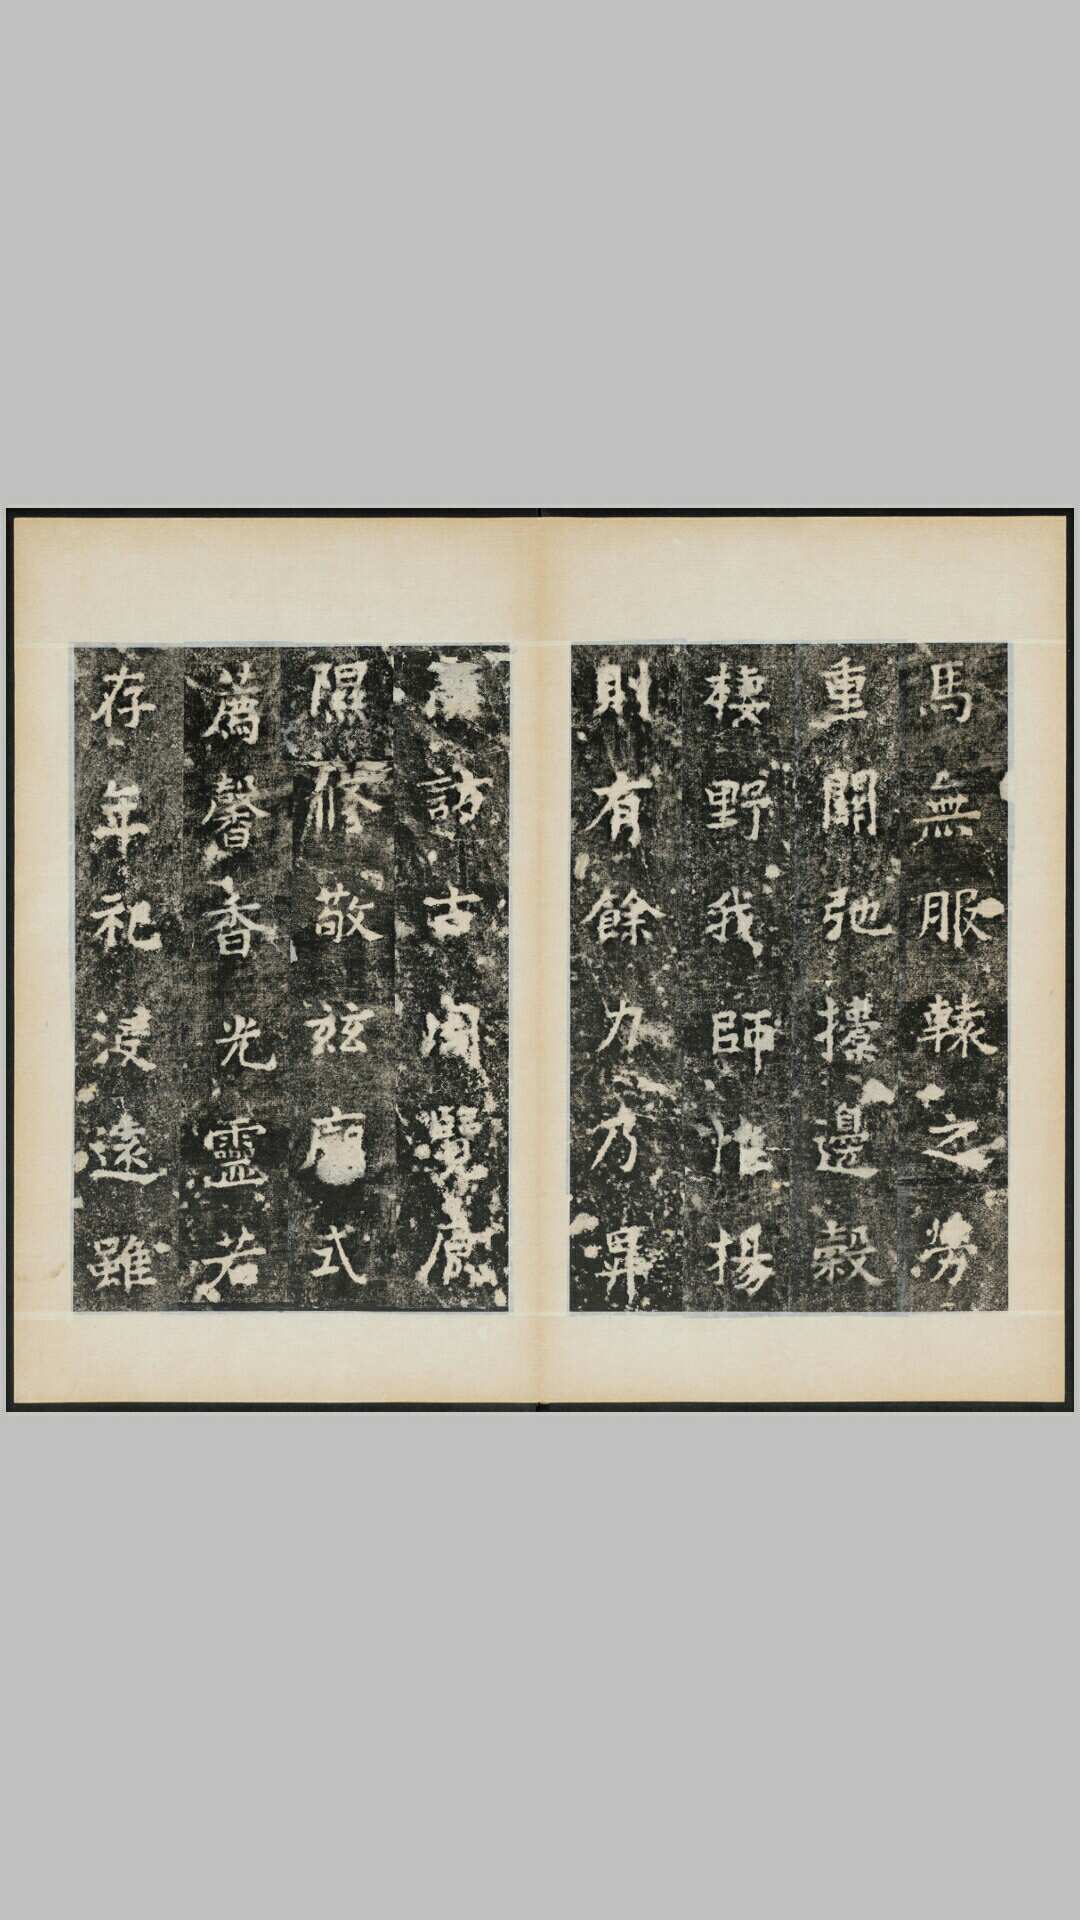 馬無服轅之勞
重關弛邊穀
棲野我師惟揚
則有餘力乃昇
訪古周覽原
隰修敬茲廟式
薦馨香光靈若
存年祀浸遠雖